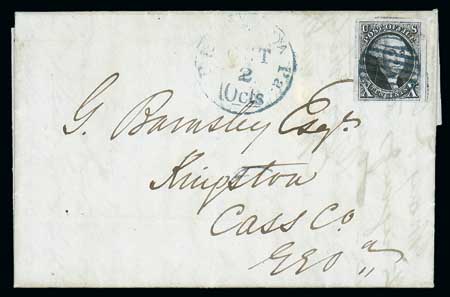 U S
POST OFFICE
X X
Pa.
2
10cts
G. Barnsley Esqr.
Kingston
Cass Co.
Geo "